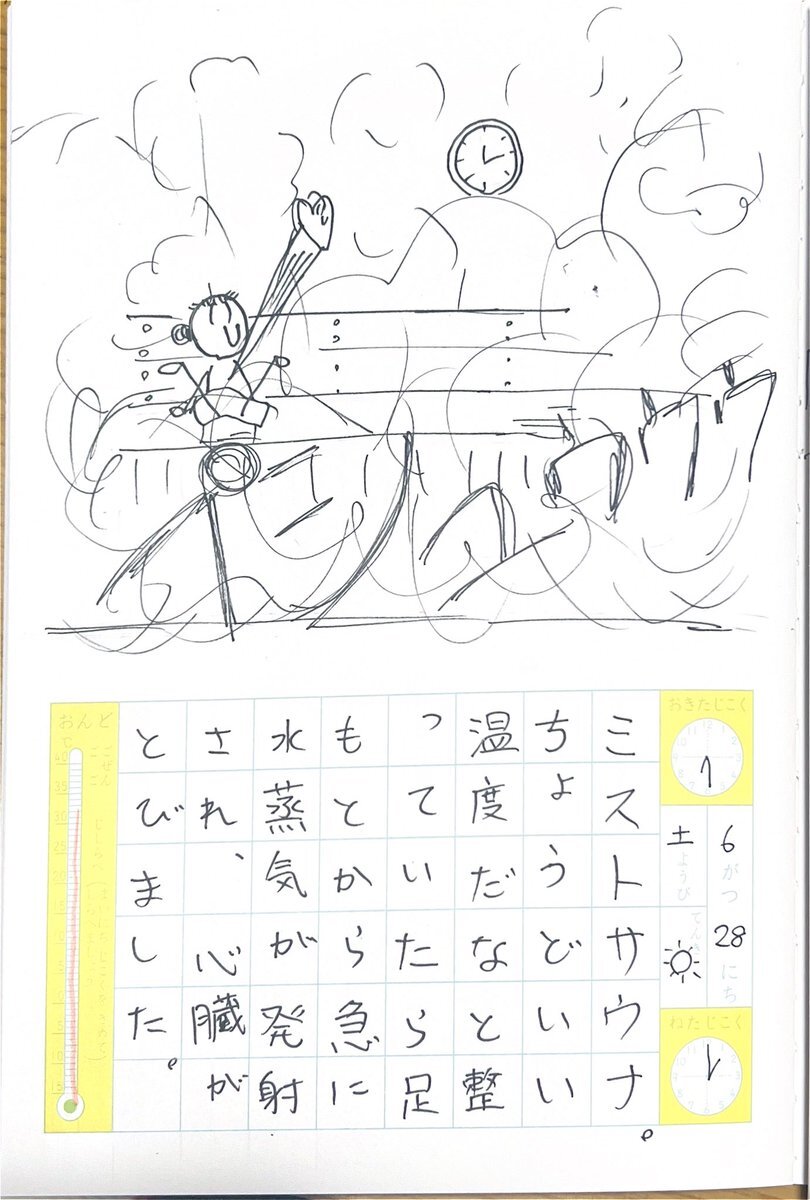 おきたじこく
6がつ28にち
土ようび
てんき
ねたじこく
ミストサウナ。
ちょうどいい
温度だなと整
っていたら足
もとから急に
水蒸気が発射
され、心臓が
とびました。
おんど
℃
ごぜん
ごご
40
35
30
25
20
15
10
5
0
5
10
15